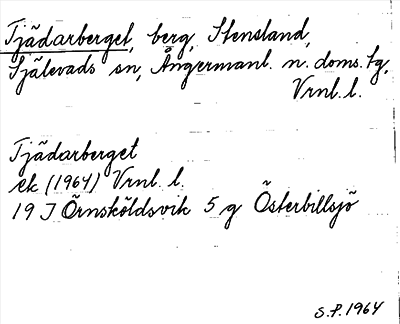 Tjädarberget, berg, Stensland,
Själevads sn, Ångermanl. n. doms. tg,
Vrnl. l.
Tjädarberget
ek (1964) Vrnl. l.
19 J Örnsköldsvik 5 g Österbillsjö
S.P. 1964